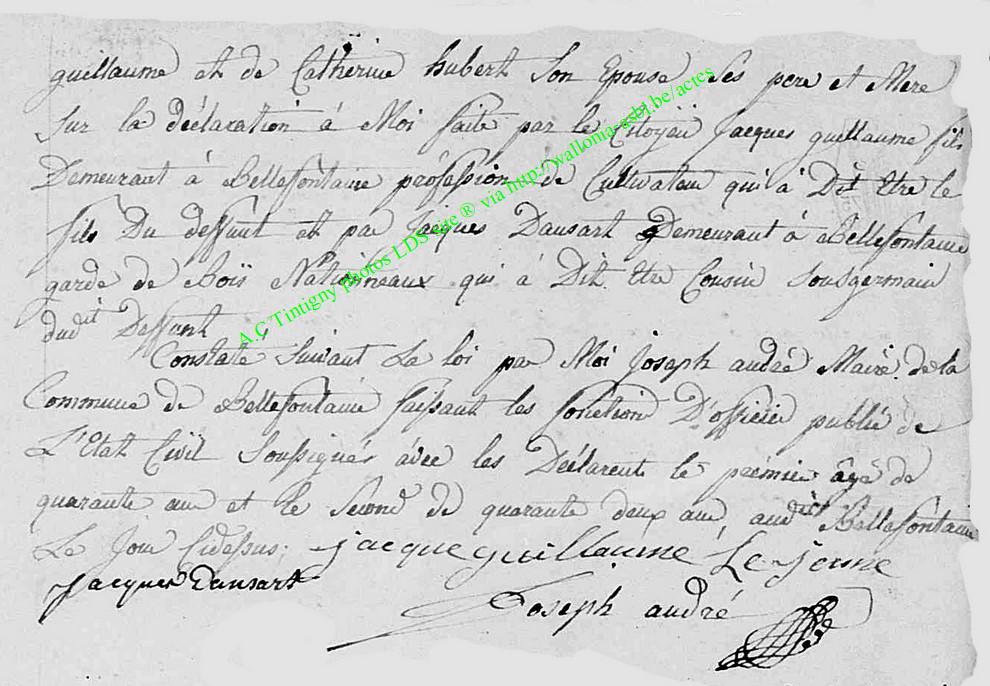 guillaume et de Catherine hubert Son Epouse Ses pere et Mere
Sur la déclaration à Moi faite par le Citoyen Jacques guillaume fils
Demeurant à Bellefontaine proféssion de Cultivateur qui à Dit Etre le
fils Du deffunt et par Jacques Dansart Demeurant à Bellefontaine
garde de Bois Nationneaux qui à Dit Etre Cousin Sousgermain
dudit Deffunt
Constaté Suivant La loi par Moi Joseph andré Maire de la
Commune de Bellefontaine faissant les fonctions D'officier publié de
L'Etat Civil Soussignés avec les Déclarent le prémier âgé de
quarante ans et le Second de quarante deux ans audit Bellefontaine
Le Jour Cidessus; jacque guillaume Le jeune
Jacques Dansart
Joseph andré
A.C Tintigny photos LDS site ® via http://wallonia-asbl.be/actes